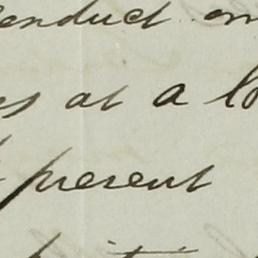 conduct on
es at a lo
present